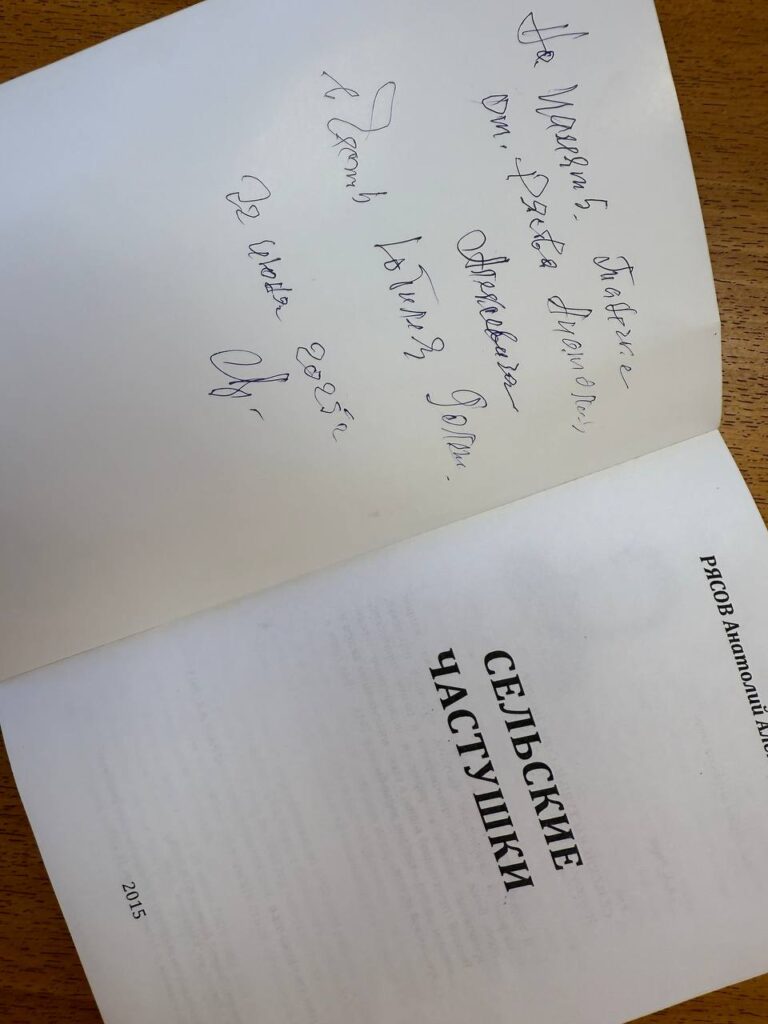 На память.
от. Рясова Анатолия
Алексеевича
в честь Юбилея
22 июня 2025г
РЯСОВ Анатолий Але
СЕЛЬСКИЕ
ЧАСТУШКИ
2015